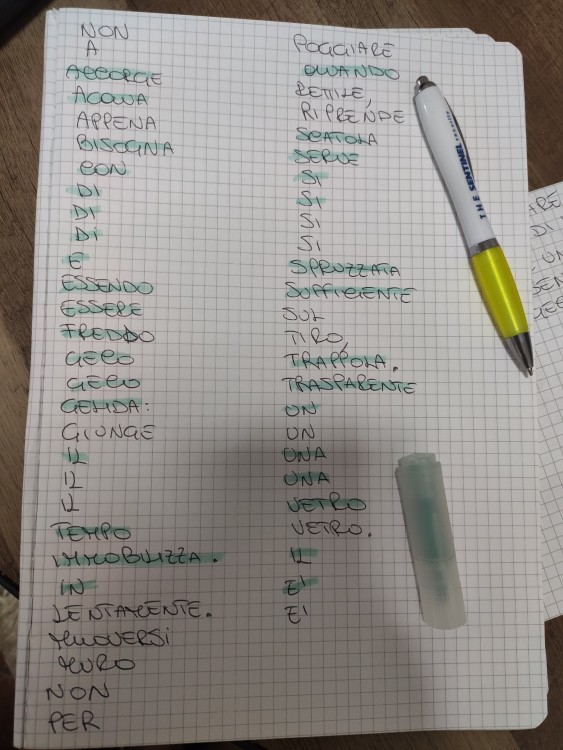 NON
A
ACCORGE
ACQUA
APPENA
BISOGNA
CON
DI
DI
Di
E
ESSENDO
ESSERE
FREDDO
GECO
GECO
GELIDA:
GIUNGE
IL
IL
IL
TEMPO
IMMOBILIZZA.
IN
LENTAMENTE.
MUOVERSI
MURO
NON
PER
POGGIARE
QUANDO
RETILE,
RIPRENDE
SCATOLA
SERVE
SI
SI
SI
SI
SPRUZZATA
SUFFICIENTE
SUL
TIRO,
TRAPPOLA.
TRASPARENTE
UN
UN
UNA
UNA
VETRO
VETRO.
IL
E'
E'
THE SENTINEL
ARE
DI